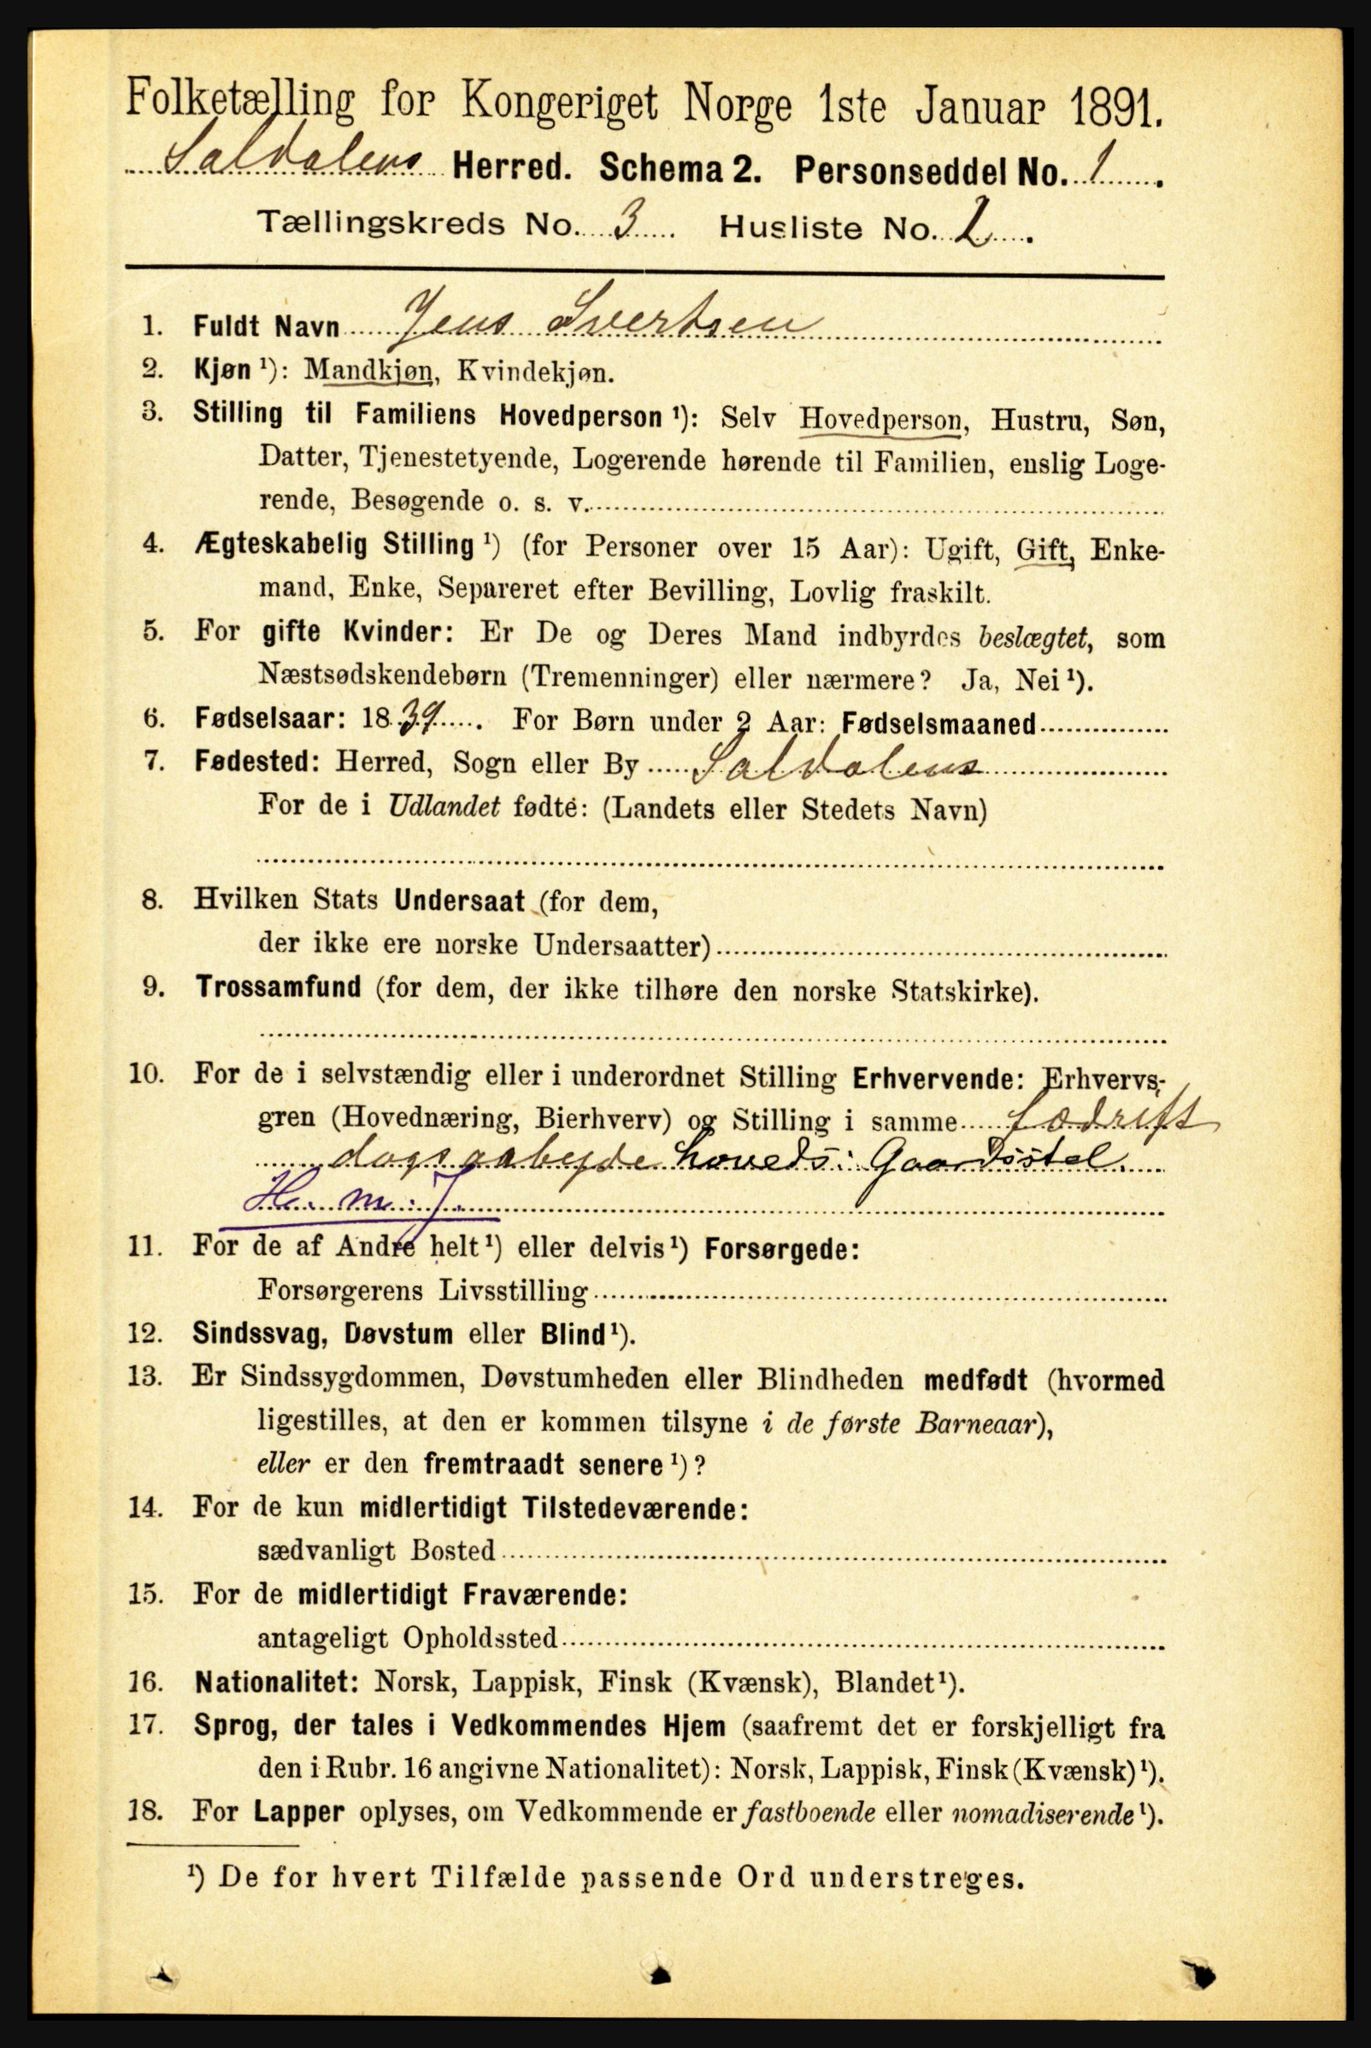 Folketælling for Kongeriget Norge 1ste Januar 1891.
Saldalens Herred. Schema 2. Personseddel No. 1.
Tællingskreds No. 3. Husliste No. 2.
1. Fuldt Navn Jens Sivertsen
2. Kjøn ¹): Mandkjøn, Kvindekjøn.
3. Stilling til Familiens Hovedperson ¹): Selv Hovedperson, Hustru, Søn,
Datter, Tjenestetyende, Logerende hørende til Familien, enslig Loge-
rende, Besøgende o. s. v.
4. Ægteskabelig Stilling ¹) (for Personer over 15 Aar): Ugift, Gift, Enke-
mand, Enke, Separeret efter Bevilling, Lovlig fraskilt.
5. For gifte Kvinder: Er De og Deres Mand indbyrdes beslægtet, som
Næstsødskendebørn (Tremenninger) eller nærmere? Ja, Nei ¹).
6. Fødselsaar: 1839. For Børn under 2 Aar: Fødselsmaaned
7. Fødested: Herred, Sogn eller By Saldalens
For de i Udlandet fødte: (Landets eller Stedets Navn)
8. Hvilken Stats Undersaat (for dem,
der ikke ere norske Undersaatter)
9. Trossamfund (for dem, der ikke tilhøre den norske Statskirke).
10. For de i selvstændig eller i underordnet Stilling Erhvervende: Erhvervs-
gren (Hovednæring, Bierhverv) og Stilling i samme fædrift
dagsarbejde hoveds: Gaardsstel.
H. m. J.
11. For de af Andre helt ¹) eller delvis ¹) Forsørgede:
Forsørgerens Livsstilling
12. Sindssvag, Døvstum eller Blind ¹).
13. Er Sindssygdommen, Døvstumheden eller Blindheden medfødt (hvormed
ligestilles, at den er kommen tilsyne i de første Barneaar),
eller er den fremtraadt senere ¹)?
14. For de kun midlertidigt Tilstedeværende:
sædvanligt Bosted
15. For de midlertidigt Fraværende:
antageligt Opholdssted
16. Nationalitet: Norsk, Lappisk, Finsk (Kvænsk), Blandet ¹).
17. Sprog, der tales i Vedkommendes Hjem (saafremt det er forskjelligt fra
den i Rubr. 16 angivne Nationalitet): Norsk, Lappisk, Finsk (Kvænsk) ¹).
18. For Lapper oplyses, om Vedkommende er fastboende eller nomadiserende ¹).
¹) De for hvert Tilfælde passende Ord understreges.